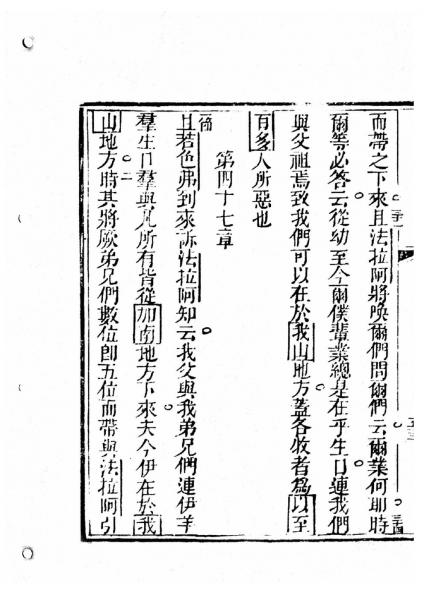 而帶之下來且法拉阿將喚爾們問爾們云爾業何耶時
爾等必答云從幼至今爾僕輩業總是在乎生口連我們
與父祖焉致我們可以在於我山地方蓋各牧者為以至
百多人所惡也
第四十七章
節
且若色弗到來訴法拉阿知云我父與我弟兄們連伊羊
羣生口羣與凡所有皆從加南地方下來夫今伊在於我
二
山地方時其將厥弟兄們數位卽五位而帶與法拉阿引